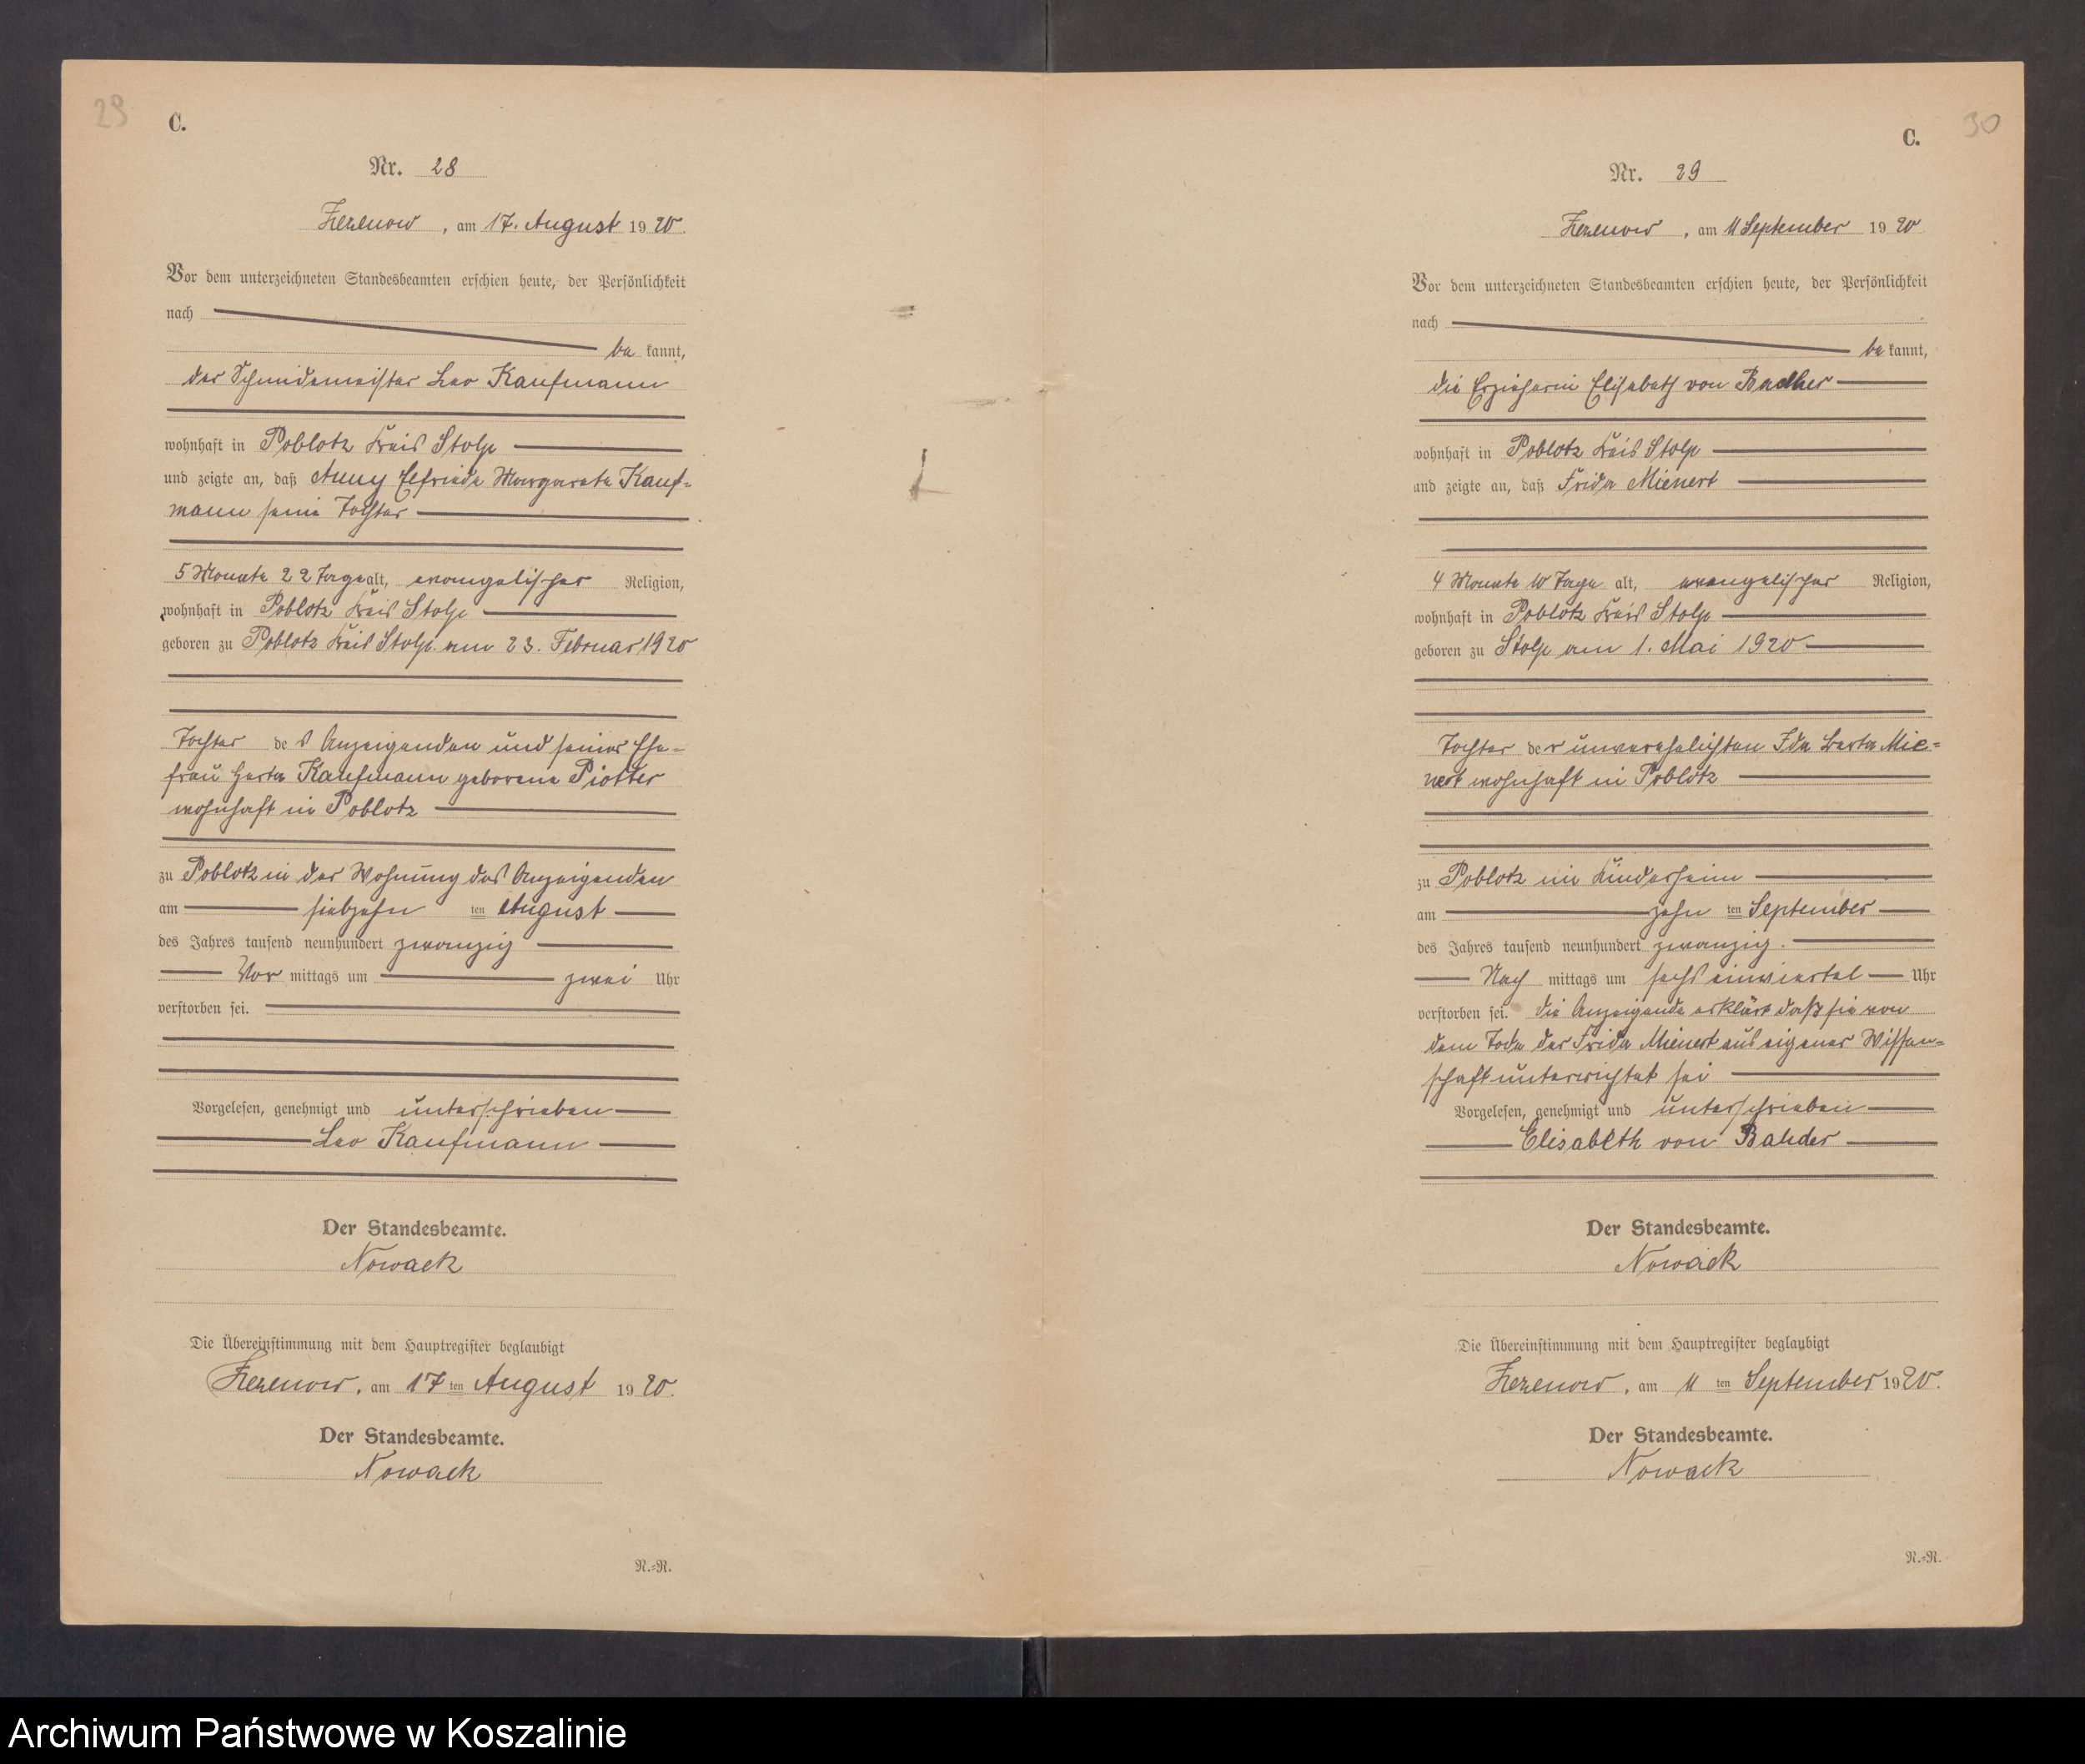 29
C.
Nr. 28
Zezenow, am 17. August 1920.
Vor dem unterzeichneten Standesbeamten erschien heute, der Persönlichkeit
nach
be kannt,
der Schmiedemeister Leo Kaufmann
wohnhaft in Poblotz Kreis Stolp
und zeigte an, daß Anny Elfriede Margarete Kauf=
mann seine Tochter
5 Monate 22 Tage alt, evangelischer Religion,
wohnhaft in Poblotz Kreis Stolp
geboren zu Poblotz Kreis Stolp am 23. Februar 1920
Tochter des Anzeigenden und seiner Ehe=
frau Herta Kaufmann geborene Piotter
wohnhaft in Poblotz
zu Poblotz in der Wohnung des Anzeigenden
am siebzehn ten August
des Jahres tausend neunhundert zwanzig
Vor mittags um zwei Uhr
verstorben sei.
Vorgelesen, genehmigt und unterschrieben
Leo Kaufmann
Der Standesbeamte.
Nowack
Die Übereinstimmung mit dem Hauptregister beglaubigt
Zezenow, am 17 ten August 1920.
Der Standesbeamte.
Nowack
N.=R.
30
C.
Nr. 29
Zezenow, am 11 September 1920
Vor dem unterzeichneten Standesbeamten erschien heute, der Persönlichkeit
nach
be kannt,
die Erzieherin Elisabeth von
wohnhaft in Poblotz Kreis Stolp
und zeigte an, daß Frida Mienert
4 Monate 10 Tage alt, evangelischer Religion,
wohnhaft in Poblotz Kreis Stolp
geboren zu Stolp am 1. Mai 1920
Tochter der unverehelichten Ida Berta Mie=
nert wohnhaft in Poblotz
zu Poblotz im Kinderheim
am zehn ten September
des Jahres tausend neunhundert zwanzig.
Nach mittags um sechs einviertel Uhr
verstorben sei. die Anzeigende erklärt daß sie von
dem Tode der Frida Mienert aus eigener Wissen=
schaft unterrichtet sei
Vorgelesen, genehmigt und unterschrieben
Elisabeth von Bahder
Der Standesbeamte.
Nowack
Die Übereinstimmung mit dem Hauptregister beglaubigt
Zezenow, am 11 ten September 1920.
Der Standesbeamte.
Nowack
N.=R.
Archiwum Państwowe w Koszalinie